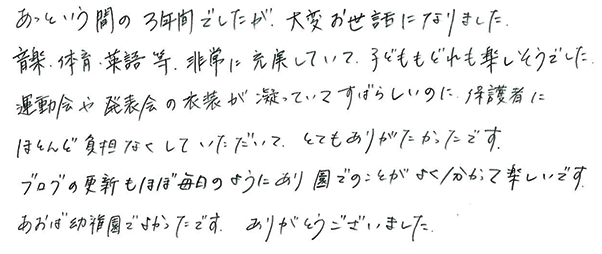 あっという間の3年間でしたが、大変お世話になりました。
音楽、体育、英語等、非常に充実していて、子どももどれも楽しそうでした。
運動会や発表会の衣装が凝っていてすばらしいのに、保護者に
ほとんど負担なくしていただいて、とてもありがたかったです。
ブログの更新もほぼ毎日のようにあり園でのことがよく分かって楽しいです。
あおば幼稚園でよかったです。ありがとうございました。